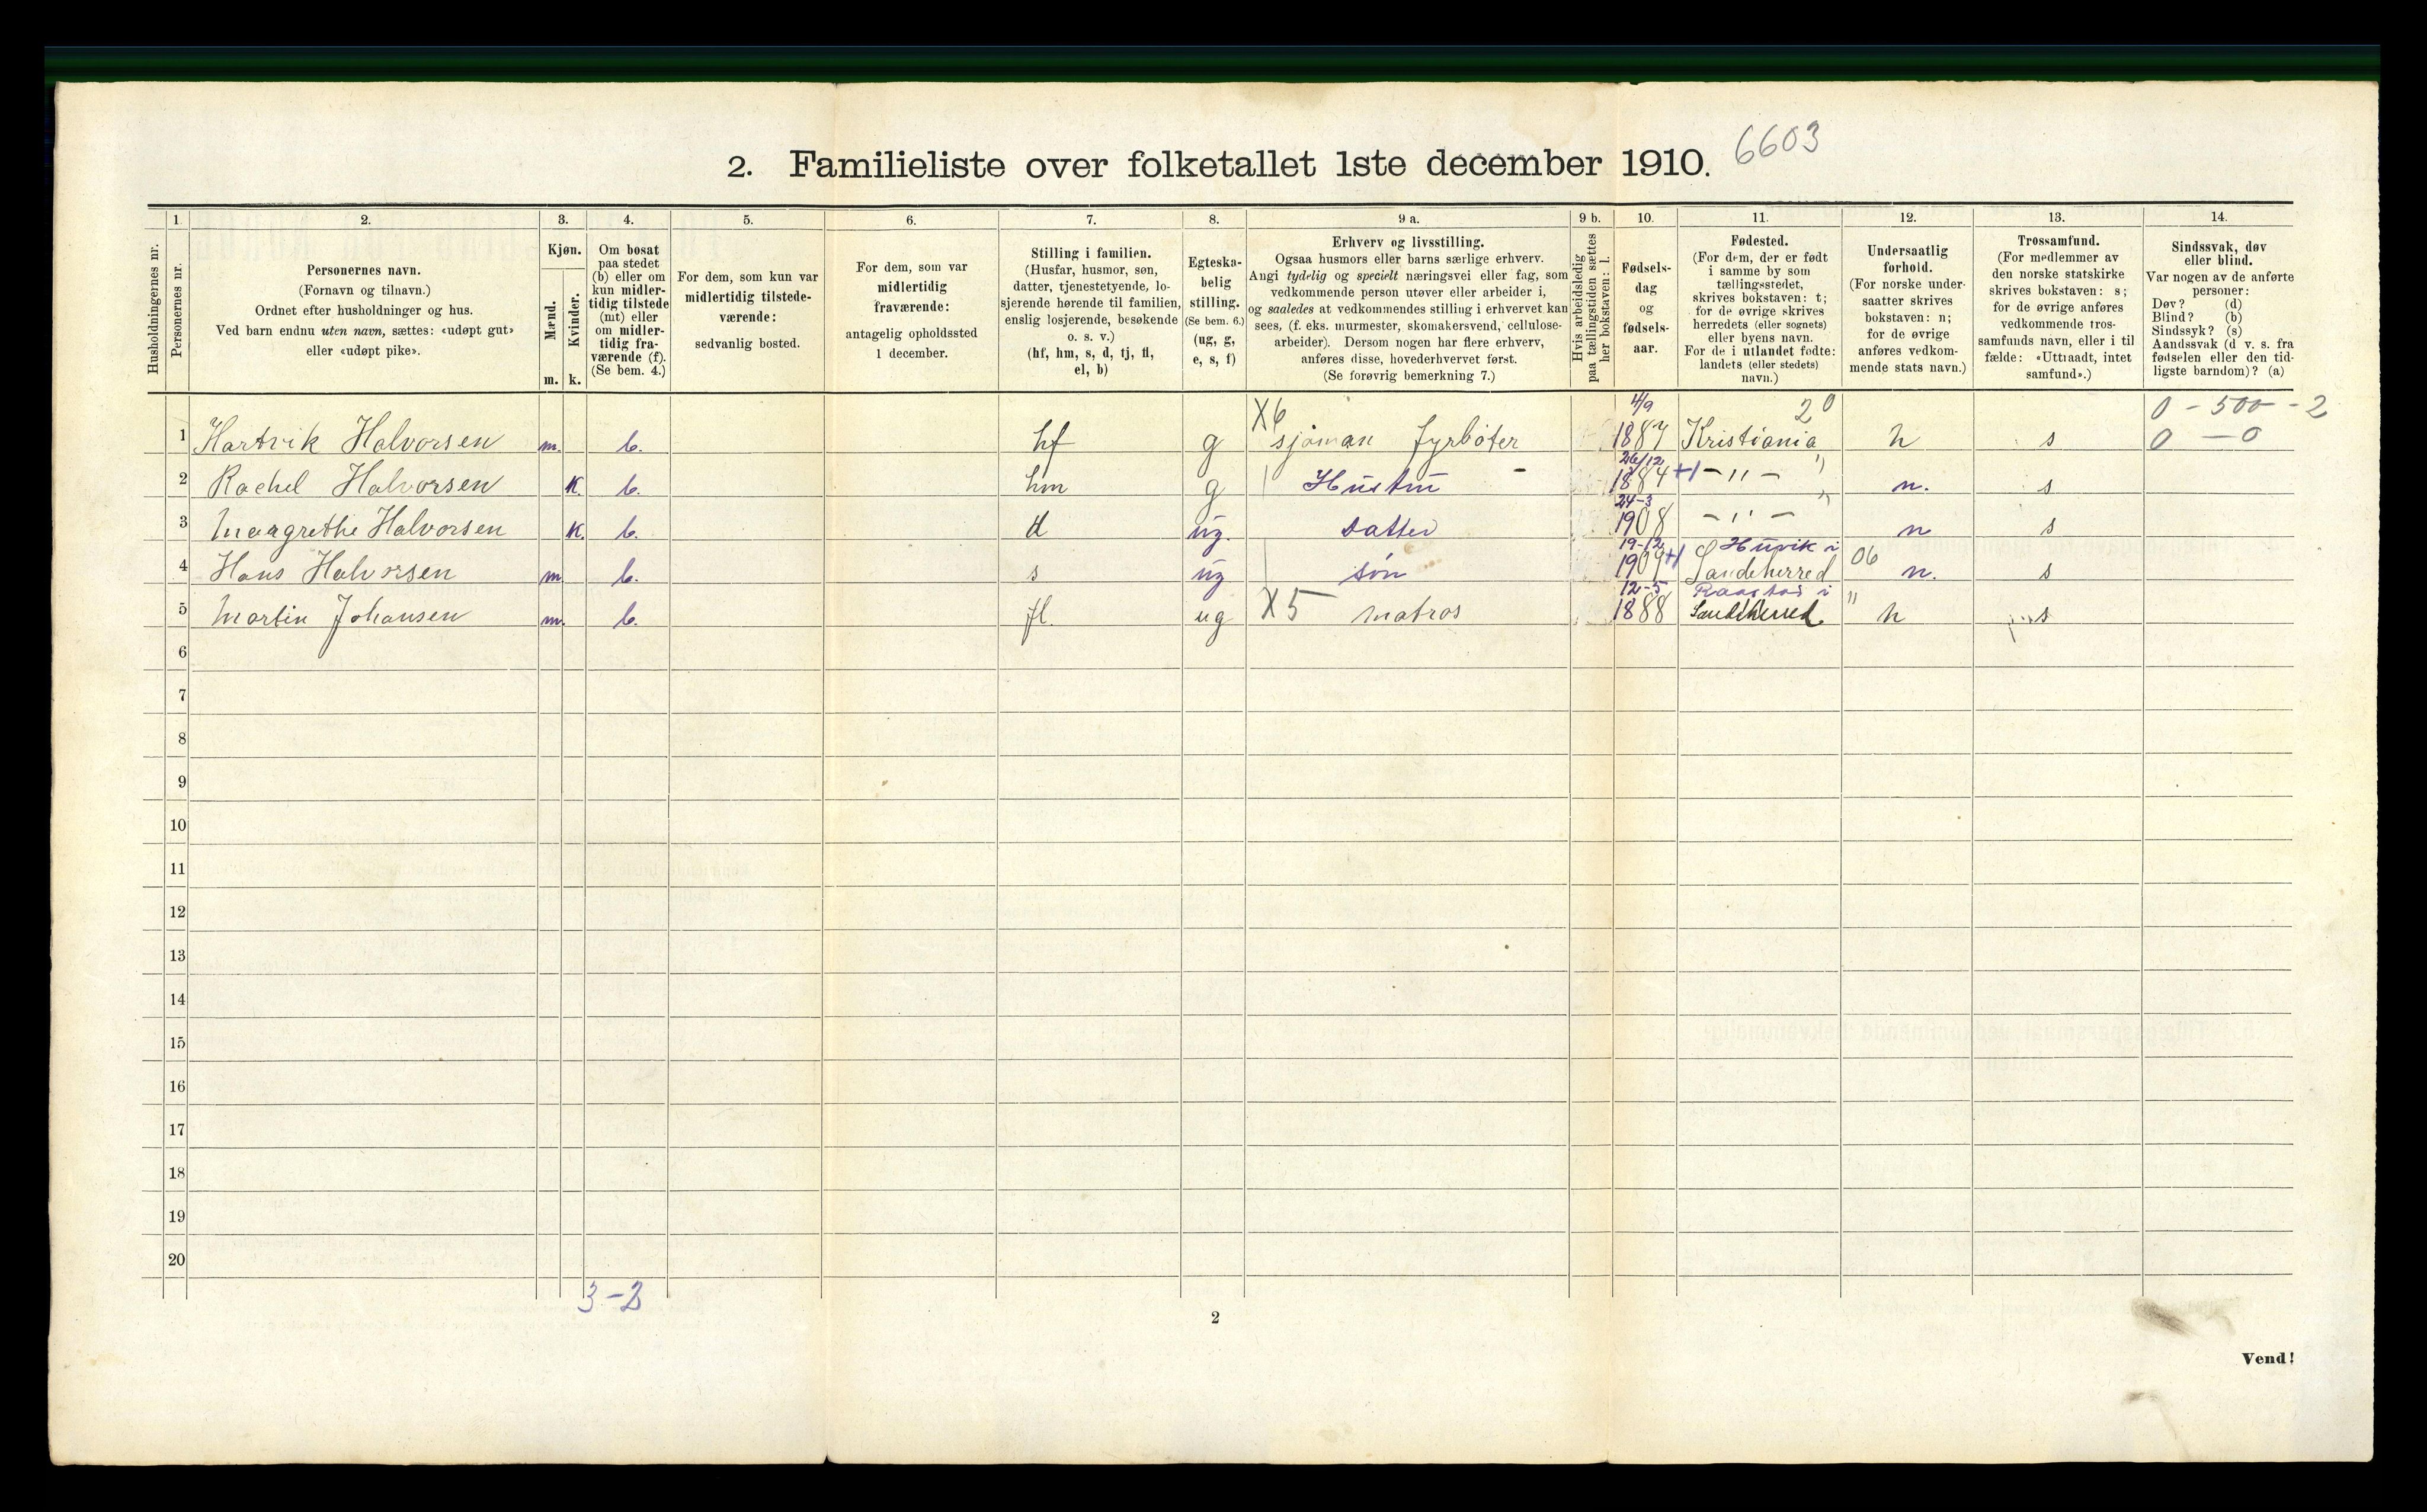 2. Familieliste over folketallet 1ste december 1910.
6603
Husholdningernes nr.
1.
Personernes nr.
2.
Personernes navn.
(Fornavn og tilnavn.)
Ordnet efter husholdninger og hus.
Ved barn endnu uten navn, sættes: «udøpt gut»
eller «udøpt pike».
3.
Kjøn.
Mænd.
Kvinder.
m. k.
4.
Om bosat
paa stedet
(b) eller om
kun midler-
tidig tilstede
(mt) eller
om midler-
tidig fra-
værende (f).
(Se bem. 4.)
5.
For dem, som kun var
midlertidig tilstede-
værende:
sedvanlig bosted.
6.
For dem, som var
midlertidig
fraværende:
antagelig opholdssted
1 december.
7.
Stilling i familien.
(Husfar, husmor, søn,
datter, tjenestetyende, lo-
sjerende hørende til familien,
enslig losjerende, besøkende
o. s. v.)
(hf, hm, s, d, tj, fl,
el, b)
8.
Egteska-
belig
stilling.
(Se bem. 6.)
(ug, g,
e, s, f)
9 a.
Erhverv og livsstilling.
Ogsaa husmors eller barns særlige erhverv.
Angi tydelig og specielt næringsvei eller fag, som
vedkommende person utøver eller arbeider i,
og saaledes at vedkommendes stilling i erhvervet kan
sees, (f. eks. murmester, skomakersvend, cellulose-
arbeider). Dersom nogen har flere erhverv,
anføres disse, hovederhvervet først.
(Se forøvrig bemerkning 7.)
9 b.
Hvis arbeidsledig
paa tællingstiden sættes
her bokstaven: l.
10.
Fødsels-
dag
og
fødsels-
aar.
11.
Fødested.
(For dem, der er født
i samme by som
tællingsstedet,
skrives bokstaven: t;
for de øvrige skrives
herredets (eller sognets)
eller byens navn.
For de i utlandet fødte:
landets (eller stedets)
navn.)
12.
Undersaatlig
forhold.
(For norske under-
saatter skrives
bokstaven: n;
for de øvrige
anføres vedkom-
mende stats navn.)
13.
Trossamfund.
(For medlemmer av
den norske statskirke
skrives bokstaven: s;
for de øvrige anføres
vedkommende tros-
samfunds navn, eller i til
fælde: «Uttraadt, intet
samfund».)
14.
Sindssvak, døv
eller blind.
Var nogen av de anførte
personer:
Døv? (d)
Blind? (b)
Sindssyk? (s)
Aandssvak (d. v. s. fra
fødselen eller den tid-
ligste barndom)? (a)
X6 4/9 20 0 - 500 - 2
1 Hartvik Halvorsen m. b. hf g sjøman fyrbøter 1887 Kristiania n s 0 — 0
26/12
2 Rachel Halvorsen k. b. hm g Hustru - 1884 +1 - " - " n. s
24-3
3 Margrethe Halvorsen k. b. d ug. datter 1908 - " - " n s
19-12 Huvik i
4 Hans Halvorsen m b. s ug søn 1909 +1 Sandeherred 06 n. s
12-5 Raastad i
5 Martin Johansen m. b. fl. ug X5 matros 1888 Sandeherred " n s
6
7
8
9
10
11
12
13
14
15
16
17
18
19
20
3-2
2
Vend!